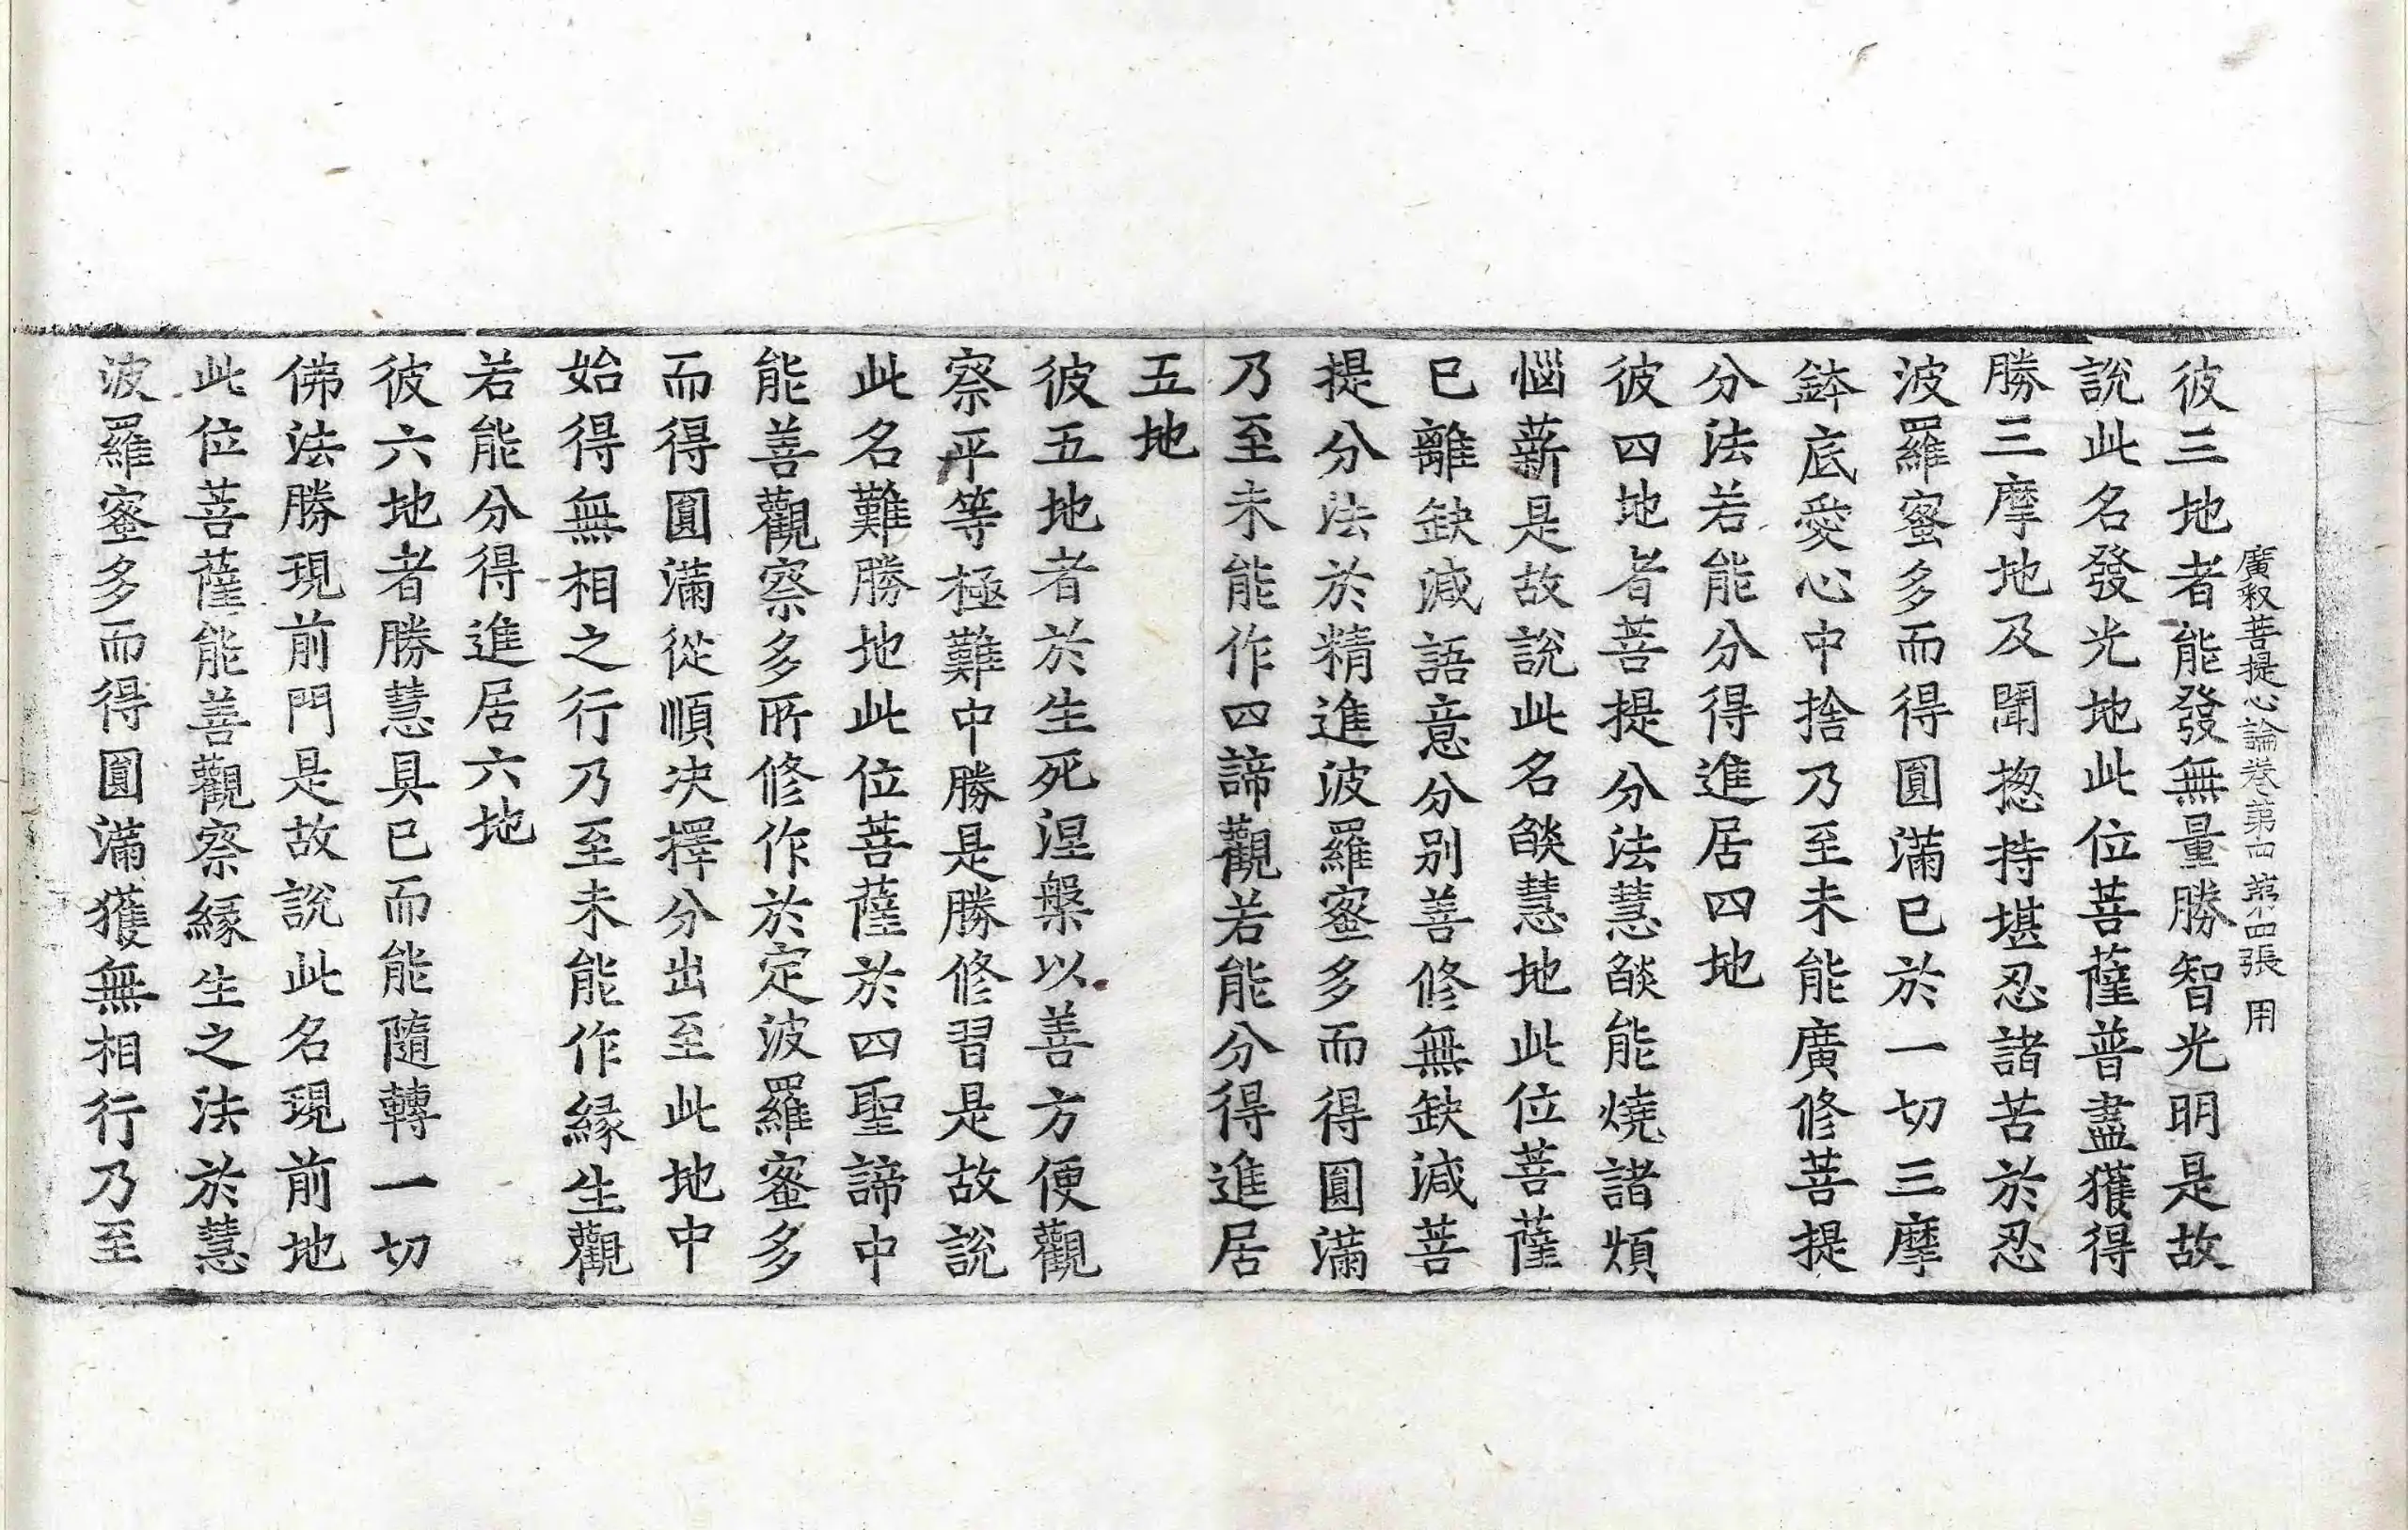 廣釈菩提心論卷第四 第四張 用
彼三地者能發無量勝智光明是故
說此名發光地此位菩薩普盡獲得
勝三摩地及聞揔持堪忍諸苦於忍
波羅蜜多而得圓滿已於一切三摩
鉢底愛心中捨乃至未能廣修菩提
分法若能分得進居四地
彼四地者菩提分法慧燄能燒諸煩
惱薪是故說此名燄慧地此位菩薩
已離缺減語意分別善修無缺減菩
提分法於精進波羅蜜多而得圓滿
乃至未能作四諦觀若能分得進居
五地
彼五地者於生死涅槃以善方便觀
察平等極難中勝是勝修習是故說
此名難勝地此位菩薩於四聖諦中
能善觀察多所修作於定波羅蜜多
而得圓滿從順决擇分出至此地中
始得無相之行乃至未能作緣生觀
若能分得進居六地
彼六地者勝慧具已而能隨轉一切
佛法勝現前門是故說此名現前地
此位菩薩能善觀察緣生之法於慧
波羅蜜多而得圓滿獲無相行乃至